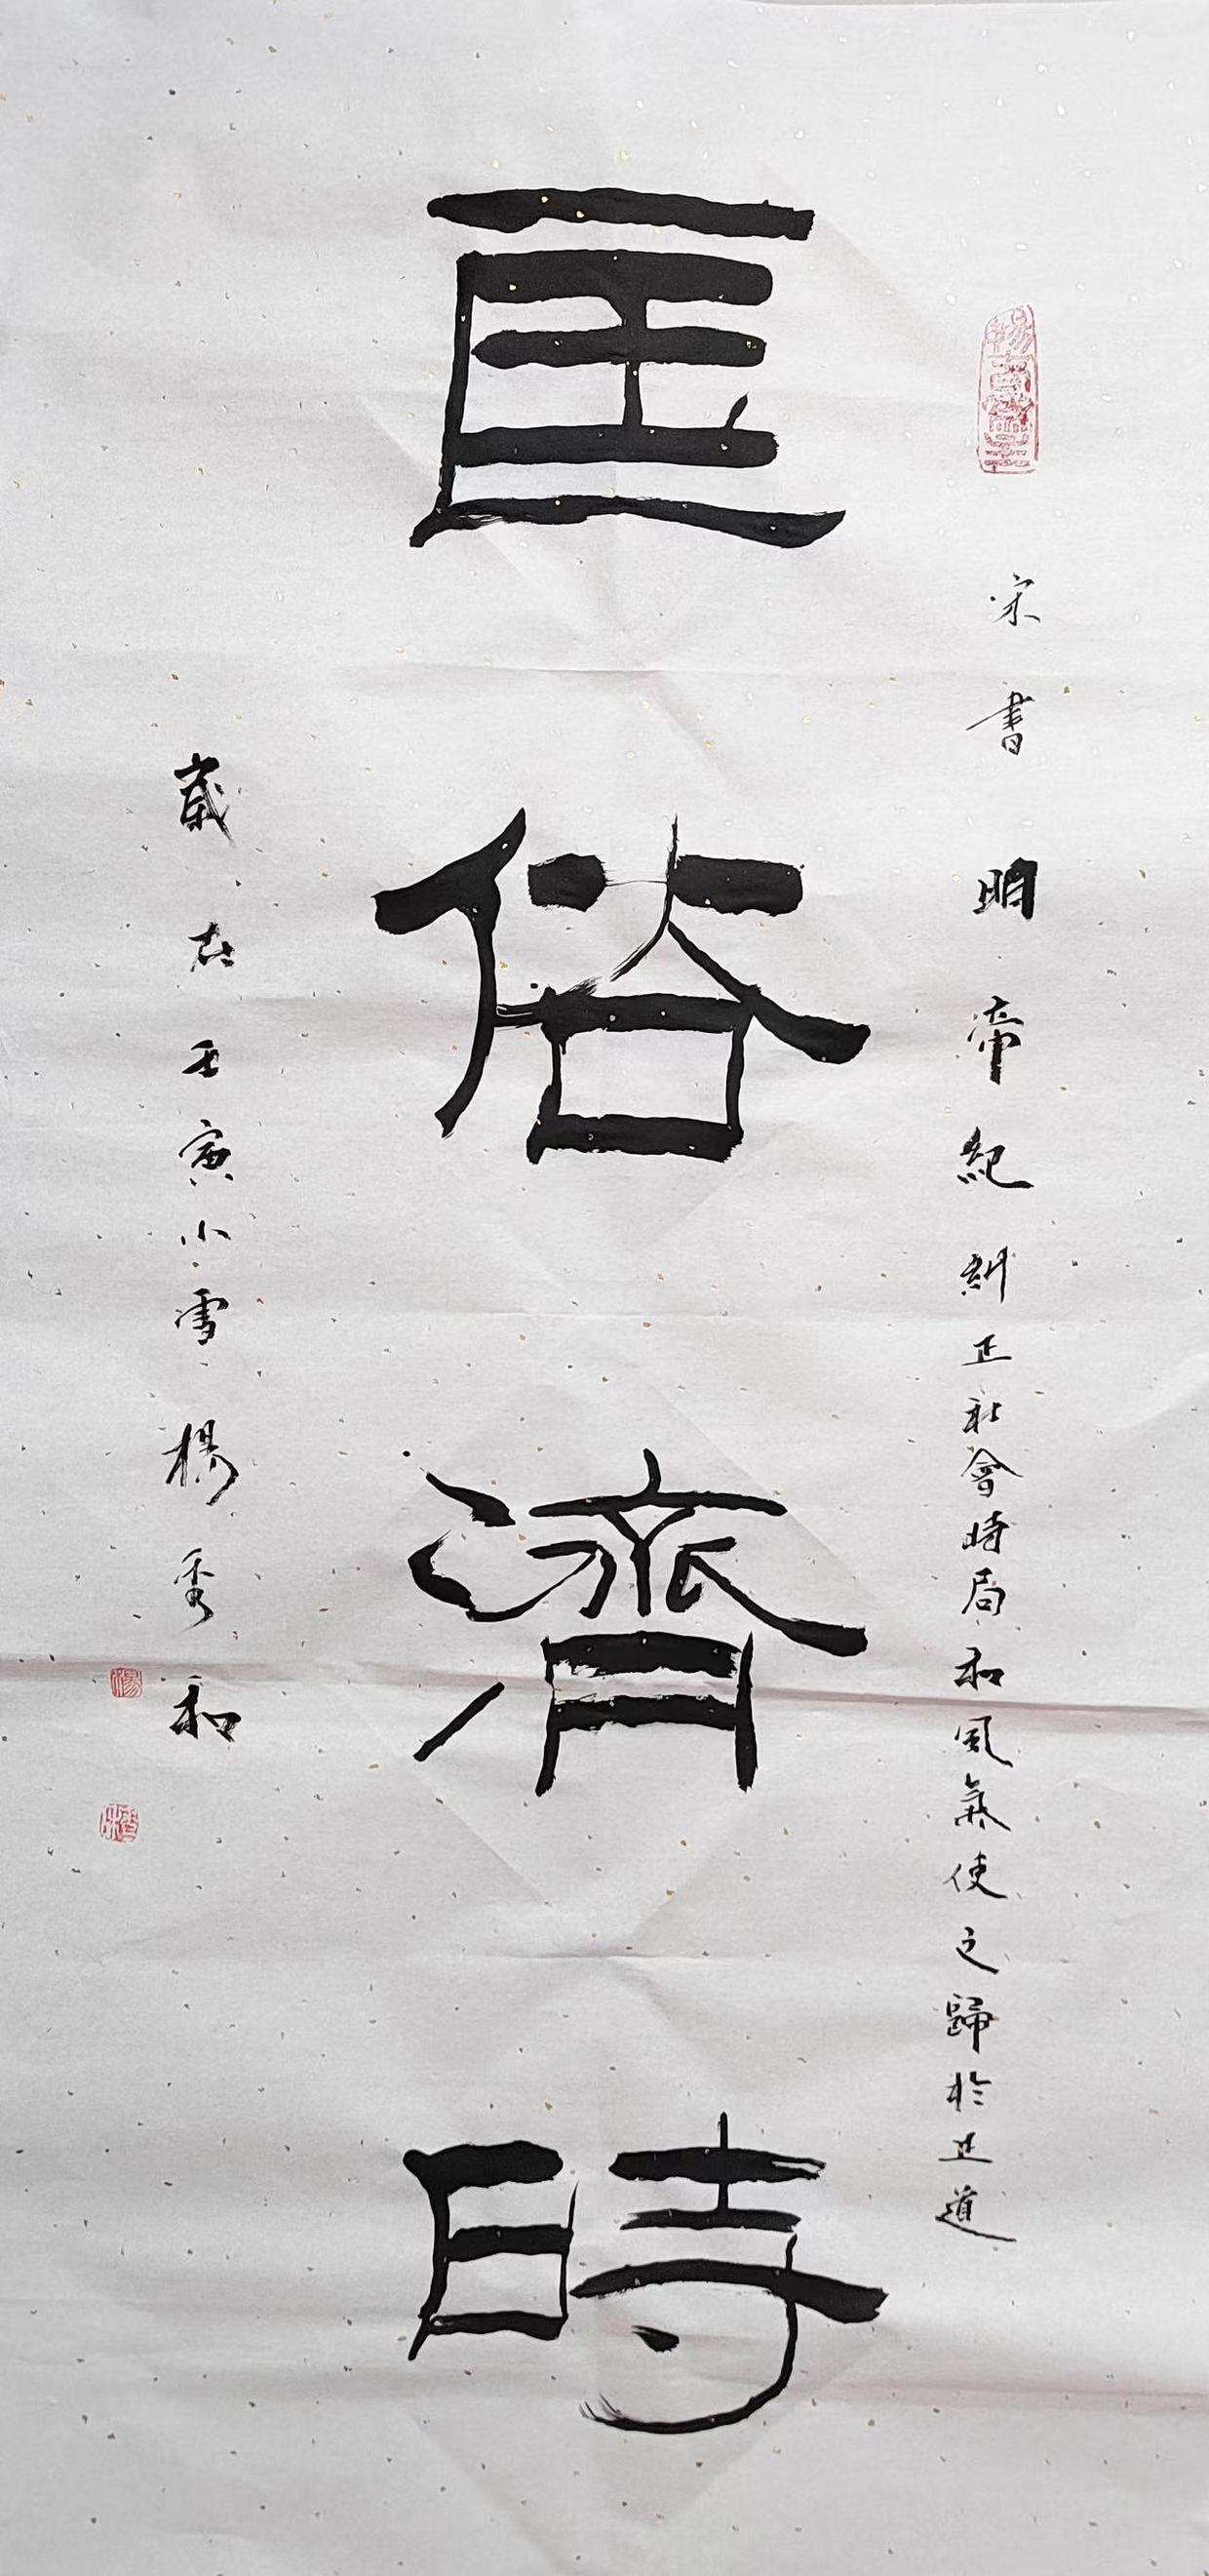 宋書明帝紀糾正社會時局和風氣使之歸於正道
匡俗濟時
歲在壬寅小雪楊秀和